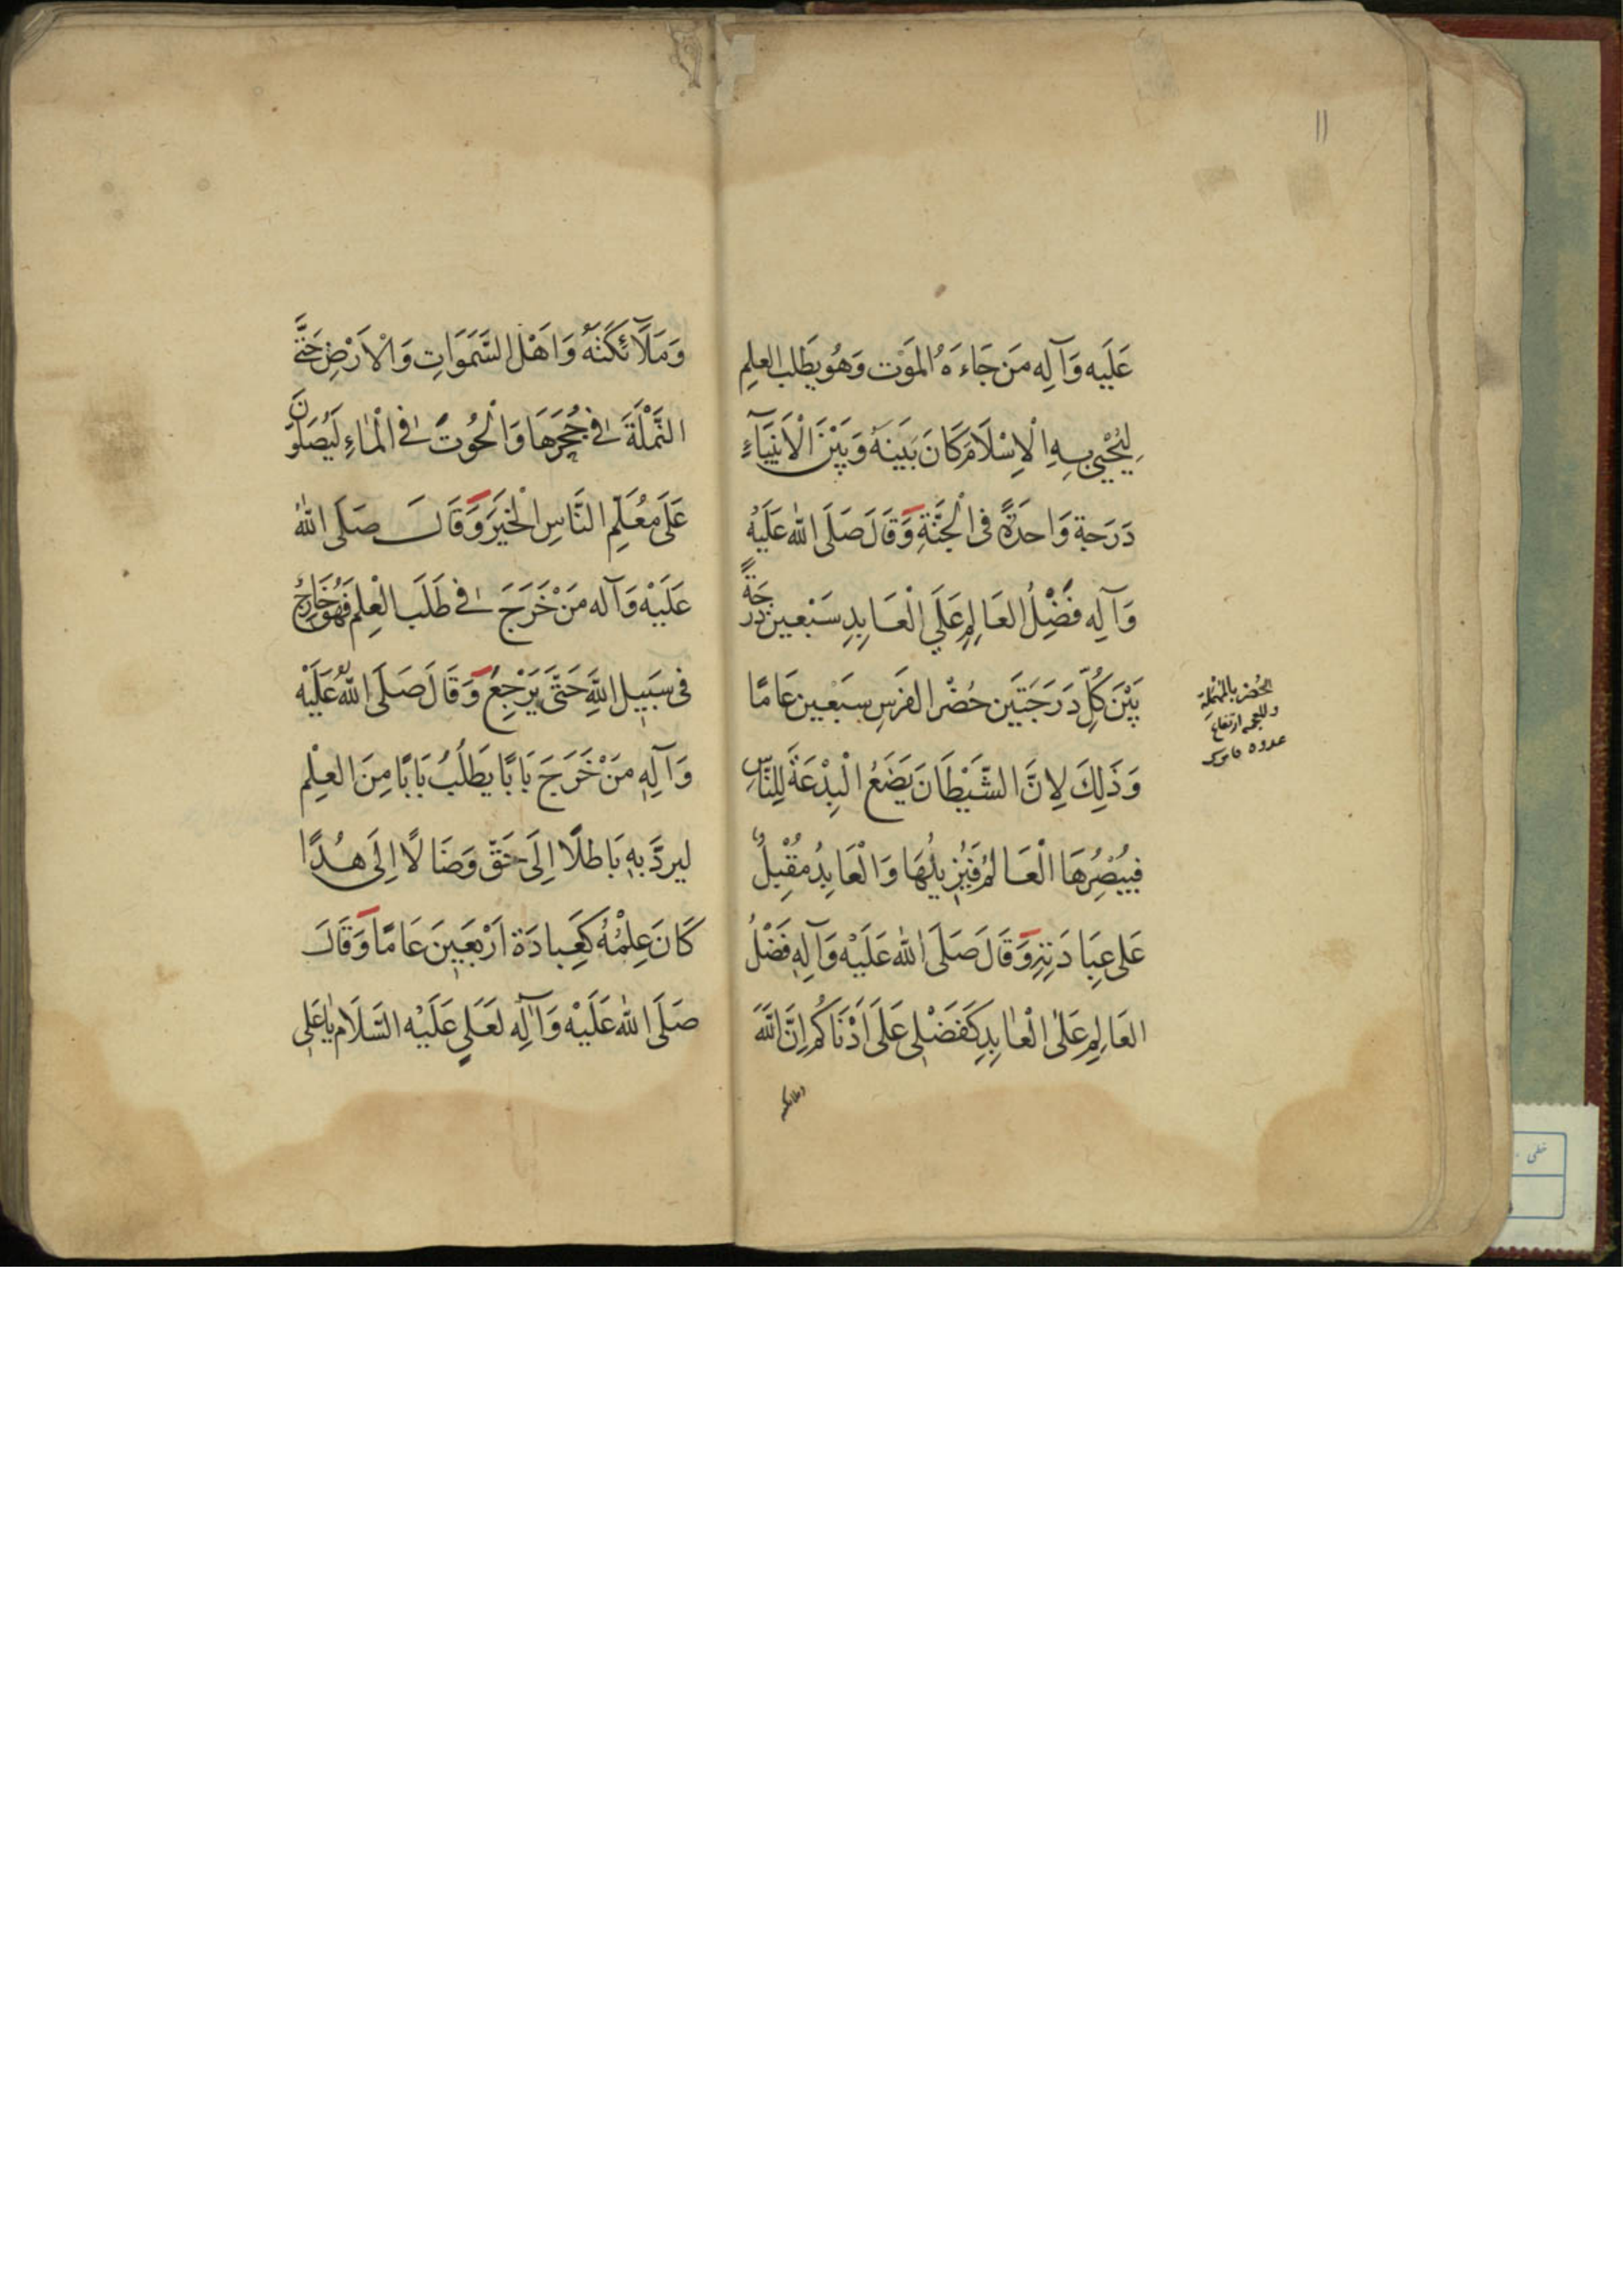 ١١
عَلَيه وَآلِه مَن جَاءَهُ المَوْت وَهُوَ يَطَلب العِلمِ
لِيُحْيِىَ بِهِ الْاِسْلَامَ كَانَ بَينَهُ وَبَيْنَ الْاَنبِيَآءِ
دَرَجة وَاحدَةٌ فى الْجَنَّةِ وَقَالَ صَلَى الله عَلَيْهِ
وَآلِه فَضْلُ العَالِمِ عَلَي الْعَابِدِ سَبْعين دَرَجَةً
بَيْنَ كُلِّ دَرَجَتَين حُضْر الفَرَسِ سَبْعين عَامًا
وَذَلِكَ لِاَنَّ الشَّيْطَانَ يَضَعُ الْبِدْعَةَ لِلنَّاسِ
فيُبْصِرُهَا الْعَالمُ فَيُزيلُهَا وَالْعَابِدُ مُقْبِلٌ
عَلى عِبَادَتِهِ وَقَالَ صَلَى الله عَلَيْه وَآلِهِ فَضْلُ
العَالِمِ عَلَى الْعابِدِ كَفَضْلِى عَلَى اَدْنَاكُم اِنَّ اللَّهَ
وملائكته
الحُضر بالمُهْمَلة
والمعجمه ارتفاع
عدوه قاموس
وَمَلآئِكَتَهُ وَاَهْلَ السَّمَوَاتِ وَالْاَرْضِ حَتَّى
النَّمْلَةَ فى جُحْرِهَا وَالْحُوتَ فى الْمَاءِ لَيُصَلُّونَ
عَلَى مُعَلِّمِ النَّاسِ الْخَيرَ وَقَالَ صَلَى اللهُ
عَلَيْهِ وَآله مَنْ خَرَجَ فى طَلَبَ الْعِلم فَهُوَ خَارِجٌ
فى سَبيل اللَّهِ حَتَّى يَرْجِعَ وَقَالَ صَلَى اللهُ عَلَيْه
وَآلِهِ مَنْ خَرَجَ بَابًا يَطَلُبُ بَابًا مِنَ العِلْم
ليردَّ بِهِ بَاطلًا اِلَى حَقّ وَضَالًا اِلَى هُدًا
كَانَ عِلْمُهُ كَعِبادَة اَرْبَعِينَ عَامًا وَقَالَ
صَلَى الله عَلَيْه وَآلِه لعَلىٍ عَلَيْه السَّلَام يَا عَلى